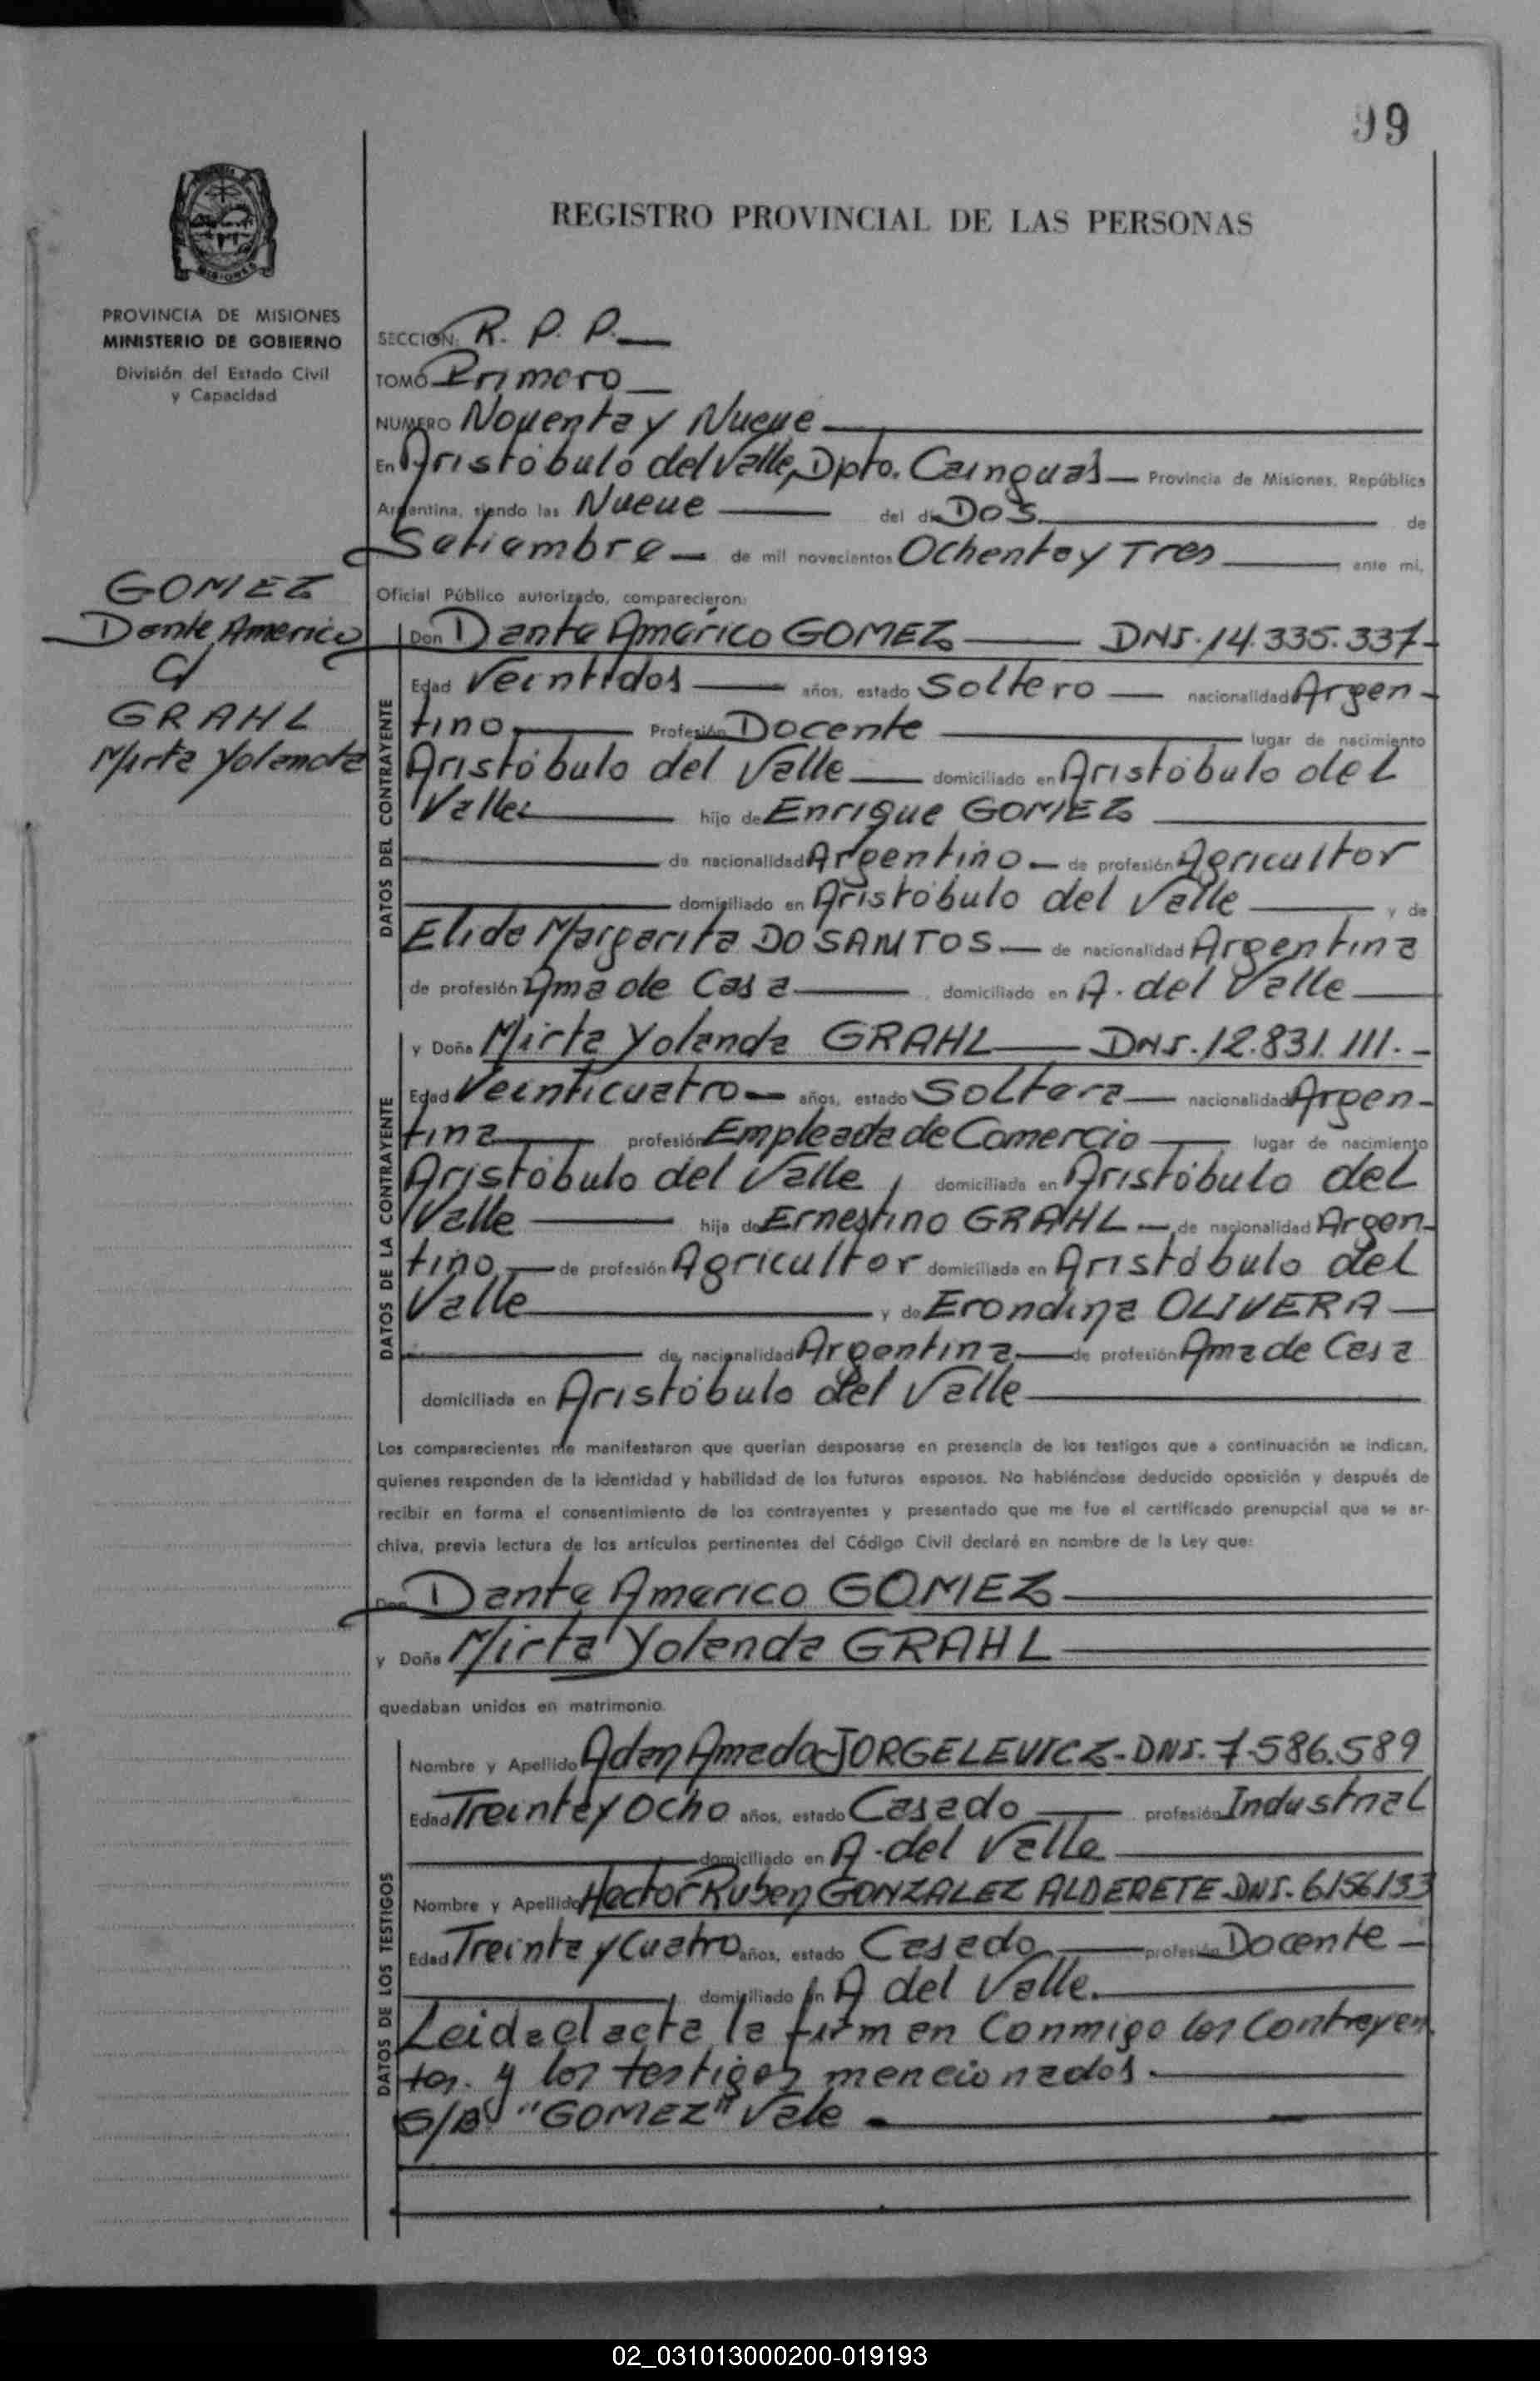 99
REGISTRO PROVINCIAL DE LAS PERSONAS
PROVINCIA DE MISIONES
MINISTERIO DE GOBIERNO
División del Estado Civil
y Capacidad
GOMEZ
Dante Americo
c/
GRAHL
Mirta Yolanda
SECCION: R. P. P.
TOMO Primero
NUMERO Noventa y Nueve
En Aristóbulo del Valle, Dpto. Cainguas Provincia de Misiones, República
Argentina, siendo las Nueve del día Dos de
Setiembre de mil novecientos Ochenta y Tres ante mi,
Oficial Público autorizado, comparecieron:
DATOS DEL CONTRAYENTE
Don Dante Américo GOMEZ DNI. 14.335.337-
Edad Veintidos años, estado Soltero nacionalidad Argen-
tino Profesión Docente lugar de nacimiento
Aristóbulo del Valle domiciliado en Aristóbulo del
Valle hijo de Enrique GOMEZ
de nacionalidad Argentino de profesión Agricultor
domiciliado en Aristóbulo del Valle y de
Elida Margarita DO SANTOS de nacionalidad Argentina
de profesión Ama de Casa domiciliado en A. del Valle
DATOS DE LA CONTRAYENTE
y Doña Mirta Yolanda GRAHL DNI. 12.831.111.-
Edad Veinticuatro años, estado Soltera nacionalidad Argen-
tina profesión Empleada de Comercio lugar de nacimiento
Aristóbulo del Valle, domiciliada en Aristóbulo del
Valle hija de Ernestino GRAHL de nacionalidad Argen-
tino de profesión Agricultor domiciliado en Aristóbulo del
Valle y de Erondina OLIVERA
de nacionalidad Argentina de profesión Ama de Casa
domiciliada en Aristóbulo del Valle
Los comparecientes me manifestaron que querían desposarse en presencia de los testigos que a continuación se indican,
quienes responden de la identidad y habilidad de los futuros esposos. No habiéndose deducido oposición y después de
recibir en forma el consentimiento de los contrayentes y presentado que me fue el certificado prenupcial que se ar-
chiva, previa lectura de los artículos pertinentes del Código Civil declaré en nombre de la Ley que:
Don Dante Americo GOMEZ
y Doña Mirta Yolanda GRAHL
quedaban unidos en matrimonio.
DATOS DE LOS TESTIGOS
Nombre y Apellido Adan Amado JORGELEVICZ-DNI. 7.586.589
Edad Treinta y Ocho años, estado Casado profesión Industrial
domiciliado en A. del Valle
Nombre y Apellido Hector Ruben GONZALEZ ALDERETE DNI. 6156133
Edad Treinta y Cuatro años, estado Casado profesión Docente
domiciliado en A del Valle.
Leida el acta la firman conmigo los contrayen
tes. y los testigos mencionados.
S/B "GOMEZ" Vale
02_031013000200-019193